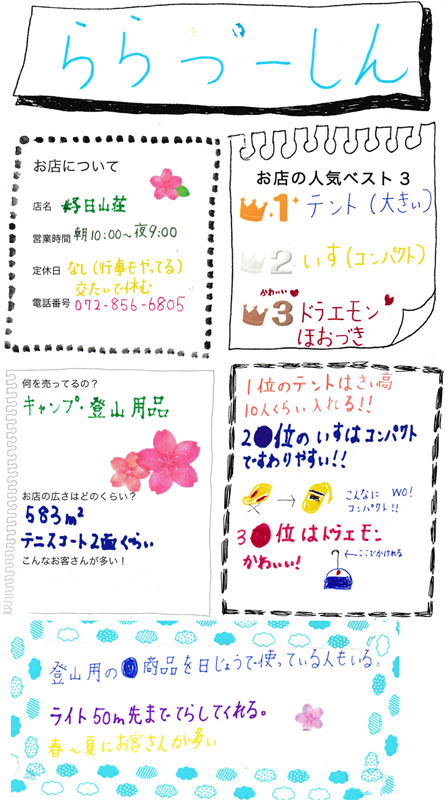 ららづーしん
お店について
店名 好日山荘
営業時間 朝10:00〜夜9:00
定休日 なし(行事もやってる)
交たいで休む
電話番号 072-856-6805
お店の人気ベスト3
1 テント(大きい)
2 いす(コンパクト)
かわいい
3 ドラエモン
ほおづき
何を売ってるの?
キャンプ・登山用品
お店の広さはどのくらい?
583m²
テニスコート2面ぐらい
こんなお客さんが多い!
1位のテントはさい高
10人くらい入れる!!
2位のいすはコンパクト
ですわりやすい!!
こんなに WO!
コンパクト!!
3位はドラエモン
かわいい!
←ここでかけれる
登山用の商品を日じょうで使っている人もいる。
ライト50m先まででらしてくれる。
春〜夏にお客さんが多い